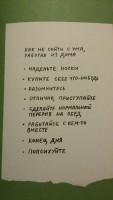 КАК НЕ СОЙТИ С УМА,
РАБОТАЯ ИЗ ДОМА
• НАДЕНЬТЕ НОСКИ
• КУПИТЕ СЕБЕ ЧТО-НИБУДЬ
• РАЗОМНИТЕСЬ
• ОТЛИЧНО, ПРИСТУПАЙТЕ
• СДЕЛАЙТЕ НОРМАЛЬНЫЙ
ПЕРЕРЫВ НА ОБЕД
• РАБОТАЙТЕ С КЕМ-ТО
ВМЕСТЕ
• КОНЕЦ ДНЯ
•